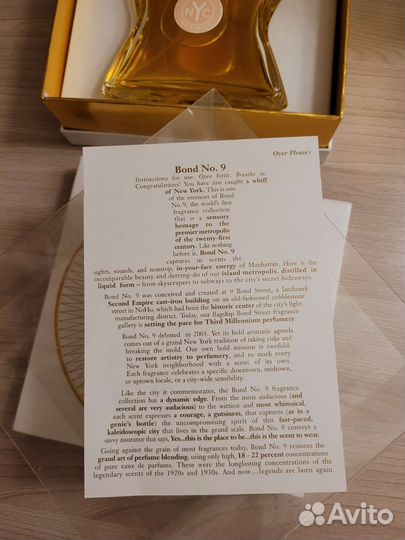 NYC
Over Please>
Bond No. 9
Instructions for use: Open bottle. Breathe in.
Congratulations! You have just caught a whiff
of New York. This is one
of the essences of Bond
No. 9, the world's first
fragrance collection
that is a sensory
homage to the
premier metropolis
of the twenty-first
century. Like nothing
before it, Bond No. 9
captures in scents the
sights, sounds, and nonstop, in-your-face energy of Manhattan. Here is the
incomparable beauty and derring-do of our island metropolis, distilled in
liquid form – from skyscrapers to subways to the city's secret hideaways.
Bond No. 9 was conceived and created at 9 Bond Street, a landmark
Second Empire cast-iron building on an old-fashioned cobblestone
street in NoHo, which had been the historic center of the city's light
manufacturing district. Today, our flagship Bond Street fragrance
gallery is setting the pace for Third Millennium perfumery.
Bond No. 9 debuted in 2003. Yet its bold aromatic agenda
comes out of a grand New York tradition of taking risks and
breaking the mold. Our own bold mission is twofold:
to restore artistry to perfumery, and to mark every
New York neighborhood with a scent of its own.
Each fragrance celebrates a specific downtown, midtown,
or uptown locale, or a city-wide sensibility.
Like the city it commemorates, the Bond No. 9 fragrance
collection has a dynamic edge. From the most audacious (and
several are very audacious) to the wittiest and most whimsical,
each scent expresses a courage, a gutsiness, that captures (as in a
genie's bottle) the uncompromising spirit of this fast-paced,
kaleidoscopic city that lives in the grand scale. Bond No. 9 conveys a
savvy assurance that says, Yes...this is the place to be...this is the scent to wear.
Going against the grain of most fragrances today, Bond No. 9 restores the
grand art of perfume blending, using only high, 18 - 22 percent concentrations
of pure eaux de parfums. These were the longlasting concentrations of the
legendary scents of the 1920s and 1930s. And now...legends are born again.
Avito